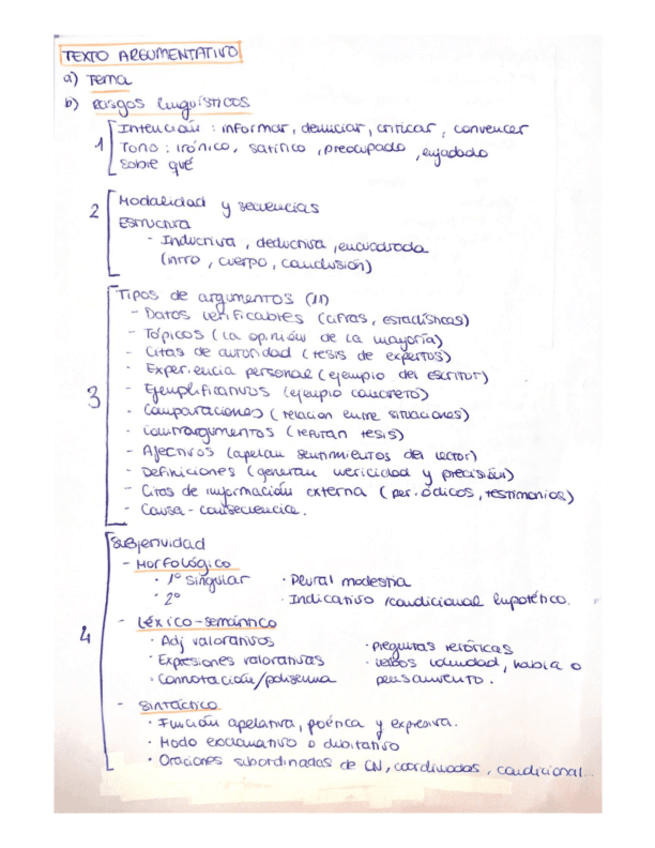 TEXTO ARGUMENTATIVO
a) Tema
b) Rasgos lingüísticos
1 Intención : informar, denunciar, criticar, convencer
Tono : irónico, satírico, preocupado, enjadado
sobre qué
2 Modalidad y secuencias
Estructura
- Inductiva, deductiva, encuadrada
(intro, cuerpo, conclusión)
3 Tipos de argumentos (11)
- Datos verificables (cifras, estadísticas)
- Tópicos (la opinión de la mayoría)
- Citas de autoridad (tesis de expertos)
- Experiencia personal (ejemplo del escritor)
- Ejemplificativos (ejemplo concreto)
- Comparaciones (relacion entre situaciones)
- contrargumentos (refutan tesis)
- Afectivos (apelan sentimientos del lector)
- Definiciones (generan vericidad y precisión)
- Citas de información externa (periódicos, testimonios)
- Causa - consecuencia.
4 Subjetividad
- Morfológico
· 1º singular · Plural modestia
· 2º · Indicativo /condicional hipotético.
- Léxico-semántico
· Adj valorativos · preguntas retóricas
· Expresiones valorativas · verbos voluntad, habla o
· Connotación/polisemia pensamiento.
- Sintáctico
· Función apelativa, poética y expresiva.
· Modo exclamativo o dubitativo
· Oraciones subordinadas de CN, coordinadas, condicional...